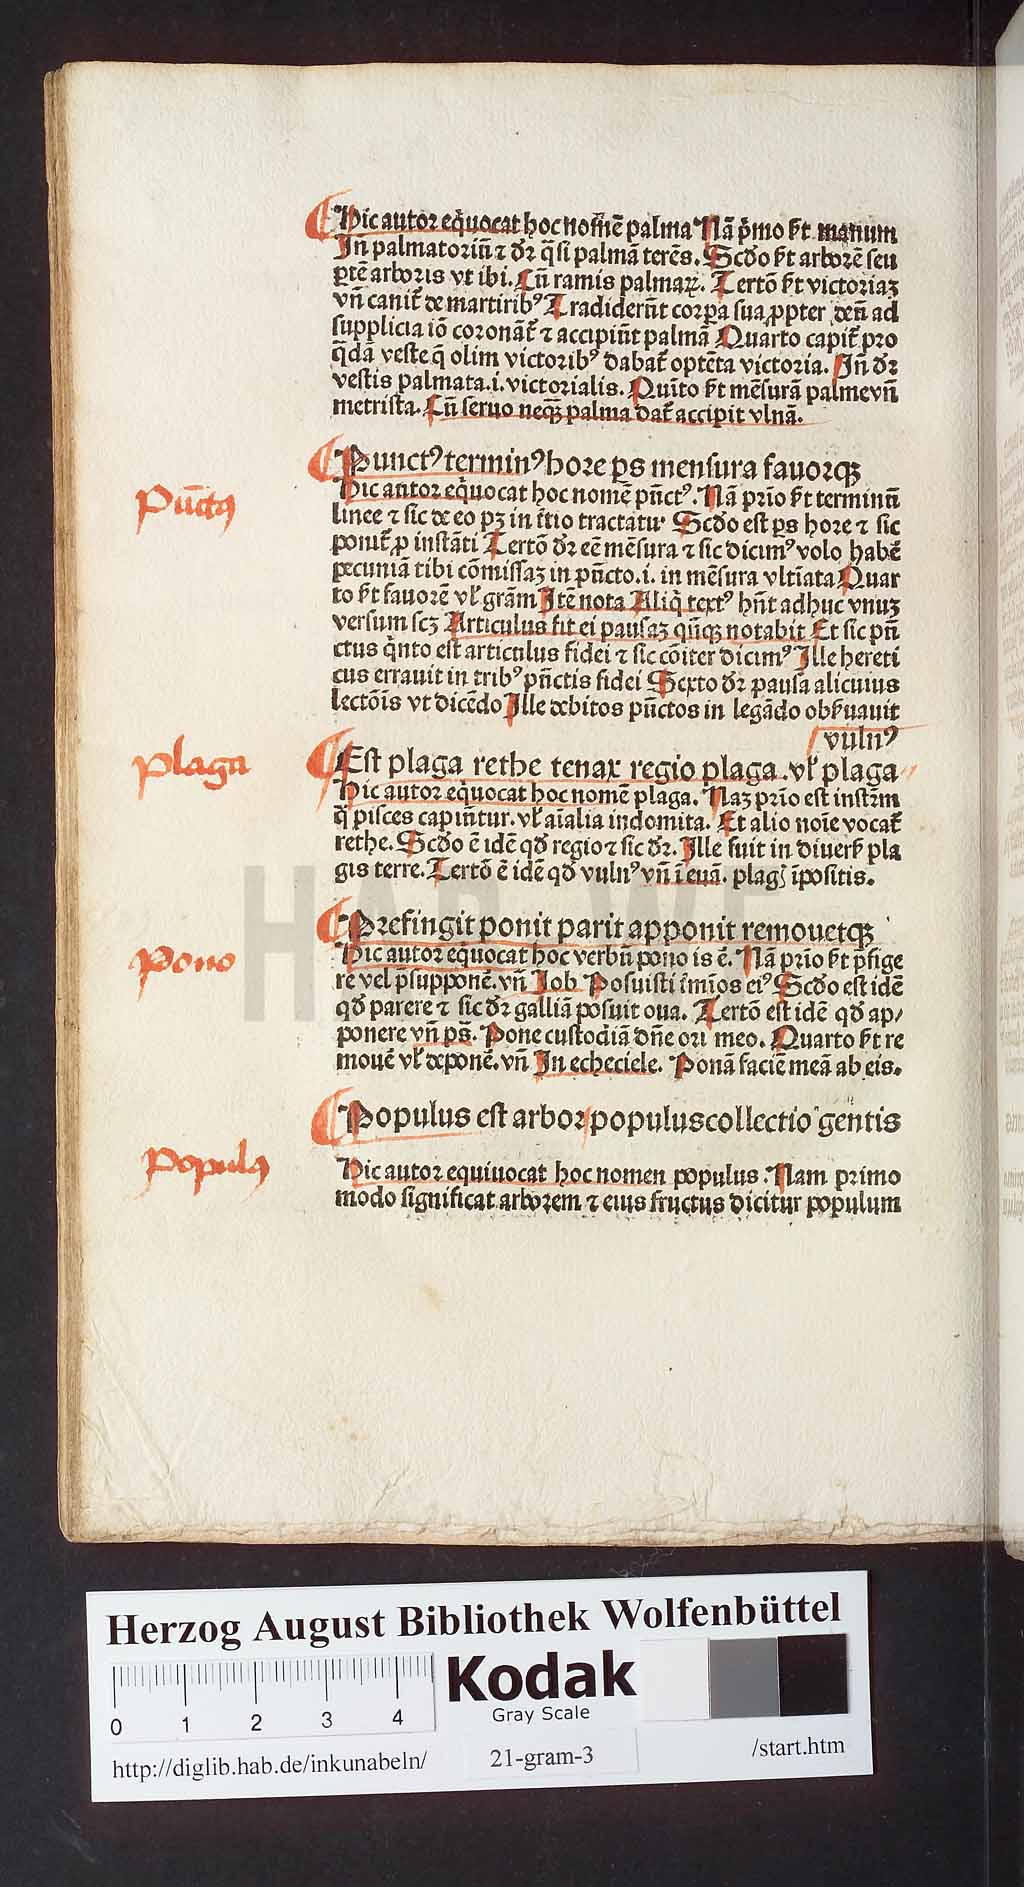 Hic autor eq̇uocat hoc nom̄e palma Nā p̄mo s̄t manum
Jn̄ palmatoriū ⁊ dr̄ q̄si palmā terēs. Scd̄o s̄t arborē seu
ptē arboris vt ibi. Cū ramis palmaꝝ. Tertō s̄t victoriaꝫ
vn̄ canit̄ de martirib⁹ Tradiderūt corpa sua ꝓpter deū ad
supplicia iō coronāt̄ ⁊ accipiūt palmā Quarto capit̄ pro
q̄dā veste q̄ olim victorib⁹ dabat̄ optēta victoria. Jn̄ dr̄
vestis palmata.i. victorialis. Quīto s̄t mēsurā palme vn̄
metrista. Cū seruo neqꝫ palma dat̄ accipit vlnā.
Punct⁹ termin⁹ hore ꝑs mensura fauorqꝫ
Hic autor eq̇uocat hoc nomē pūct⁹. Nā prīo s̄t terminū
linee ⁊ sic de eo pꝫ in t̄tio tractatu Scd̄o est ꝑs hore ⁊ sic
ponit̄ ꝓ instāti Tertō dr̄ eē mēsura ⁊ sic dicim⁹ volo habē
pecuniā tibi cōmissaꝫ in pūcto.i. in mēsura vltīata Quar
to s̄t fauorē vl̄ grām Jtē nota Aliq̇ text⁹ hn̄t adhuc vnuꝫ
versum scꝫ Articulus fit ei pausaꝫ qn̄qꝫ notabit Et sic pū
ctus q̇nto est articulus fidei ⁊ sic cōiter dicim⁹ Jlle hereti
cus errauit in trib⁹ pūctis fidei Sexto dr̄ pausa alicuius
lectōis vt dicēdo Jlle debitos pūctos in legādo obs̄uauit
vuln⁹
Est plaga rethe tenax regio plaga .vl̄ plaga
Hic autor eq̇uocat hoc nomē plaga. Naꝫ prīo est instr̄m
q̇ pisces capiūtur. vl̄ aīalia indomita. Et alio noīe vocat̄
rethe. Scd̄o ē idē qd̄ regio ⁊ sic dr̄. Jlle fuit in diuers̄ pla
gis terre. Tertō ē idē qd̄ vuln⁹ vn̄ ī euā. plaḡ īpositis.
Prefingit ponit parit apponit remouetqꝫ
Hic autor equocat hoc verbū pono is ē. Nā prīo s̄t p̄fige
re vel p̄supponē. vn̄ Job Posuisti t̄mīos ei⁹ Scd̄o est idē
qd̄ parere ⁊ sic dr̄ galliā posuit oua. Tertō est idē qd̄ ap/
ponere vn̄ ps̄. Pone custodiā dn̄e ori meo. Quarto s̄t re
mouē vl̄ deponē. vn̄ Jn echeciele. Ponā faciē meā ab eis.
Populus est arbor populus collectio gentis
Hic autor equiuocat hoc nomen populus. Nam primo
modo significat arborem ⁊ eius fructus dicitur populum
Pūct⁹
Plaga
Pono
Popul⁹
HAB WF
Herzog August Bibliothek Wolfenbüttel
0 1 2 3 4
Kodak
Gray Scale
http://diglib.hab.de/inkunabeln/
21-gram-3
/start.htm